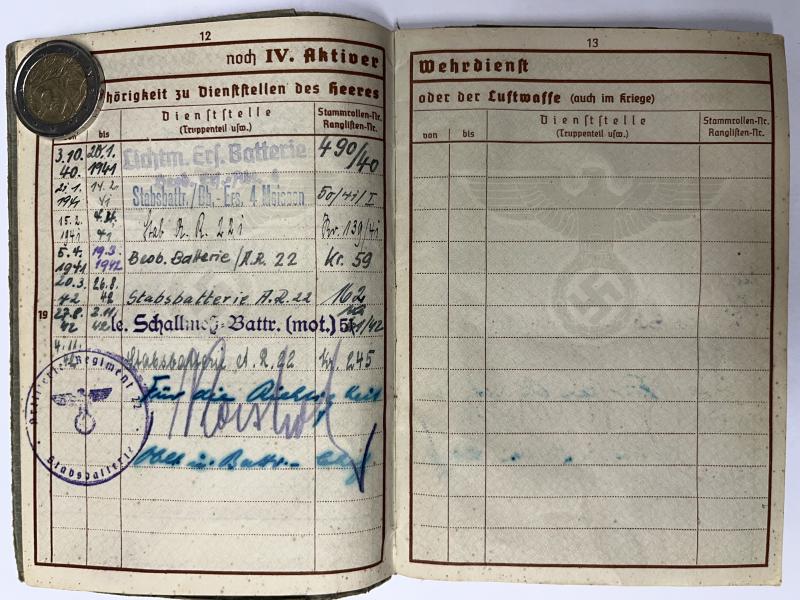 12
noch IV. Aktiver
hörigkeit zu Dienststellen des Heeres
von bis
Dienststelle
(Truppenteil usw.)
Stammrollen-Nr.
Ranglisten-Nr.
3.10. 40. 20.1. 1941 Lichtm. Ers. Batterie 490/40
21.1. 1941 14.2. 41 Stabsbattr./Bb.-Ers. 4 Meissen 50/41/I
15.2. 1941 4.4. 41 Stab A.R. 22 Nr. 139/41
5.4. 1941 19.3. 1942 Beob. Batterie/A.R. 22 Kr. 59
20.3. 42 26.8. 42 Stabsbatterie A.R. 22 162
19
27.8. 42 2.11. 42 le. Schallmeß-Battr. (mot.)
4.11. 42 Stabsbatterie A.R. 22 Kr. 245
Für die Richtigkeit
Artillerie-Regiment 22
Stabsbatterie
13
Wehrdienst
oder der Luftwaffe (auch im Kriege)
von bis
Dienststelle
(Truppenteil usw.)
Stammrollen-Nr.
Ranglisten-Nr.